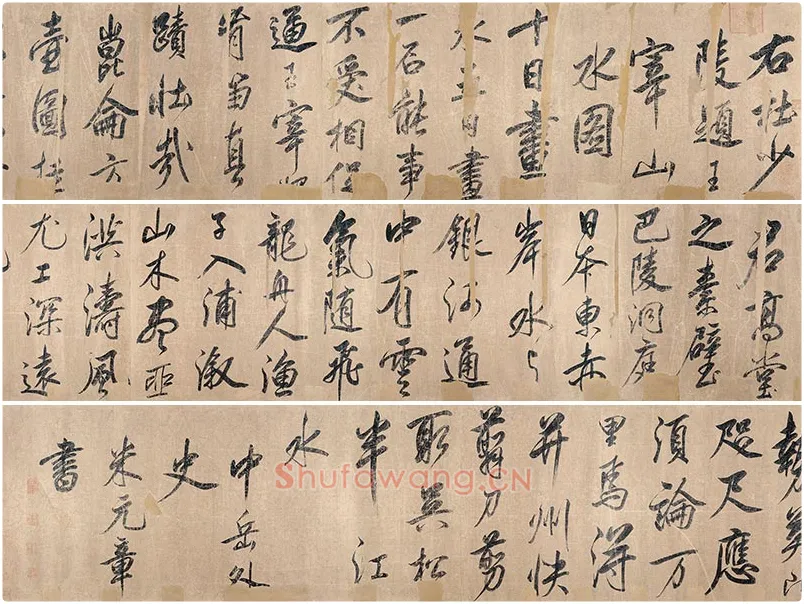 右杜少
陵題王
宰山
水図
十日畫
水五日畫
一石能事
不受相促
逼王宰始
肯留真
蹟壯哉
崑崙方
壺圖挂
君高堂
之素壁
巴陵洞庭
日本東赤
岸水与
銀河通
中有雲
氣随飛
龍舟人漁
子入浦溆
山木盡亞
洪濤風
尤工深遠
勢莫比
咫尺應
須論万
里焉得
并州快
剪刀剪
取吳松
半江
水
中岳外
史
米元章
書
Shufawang.CN